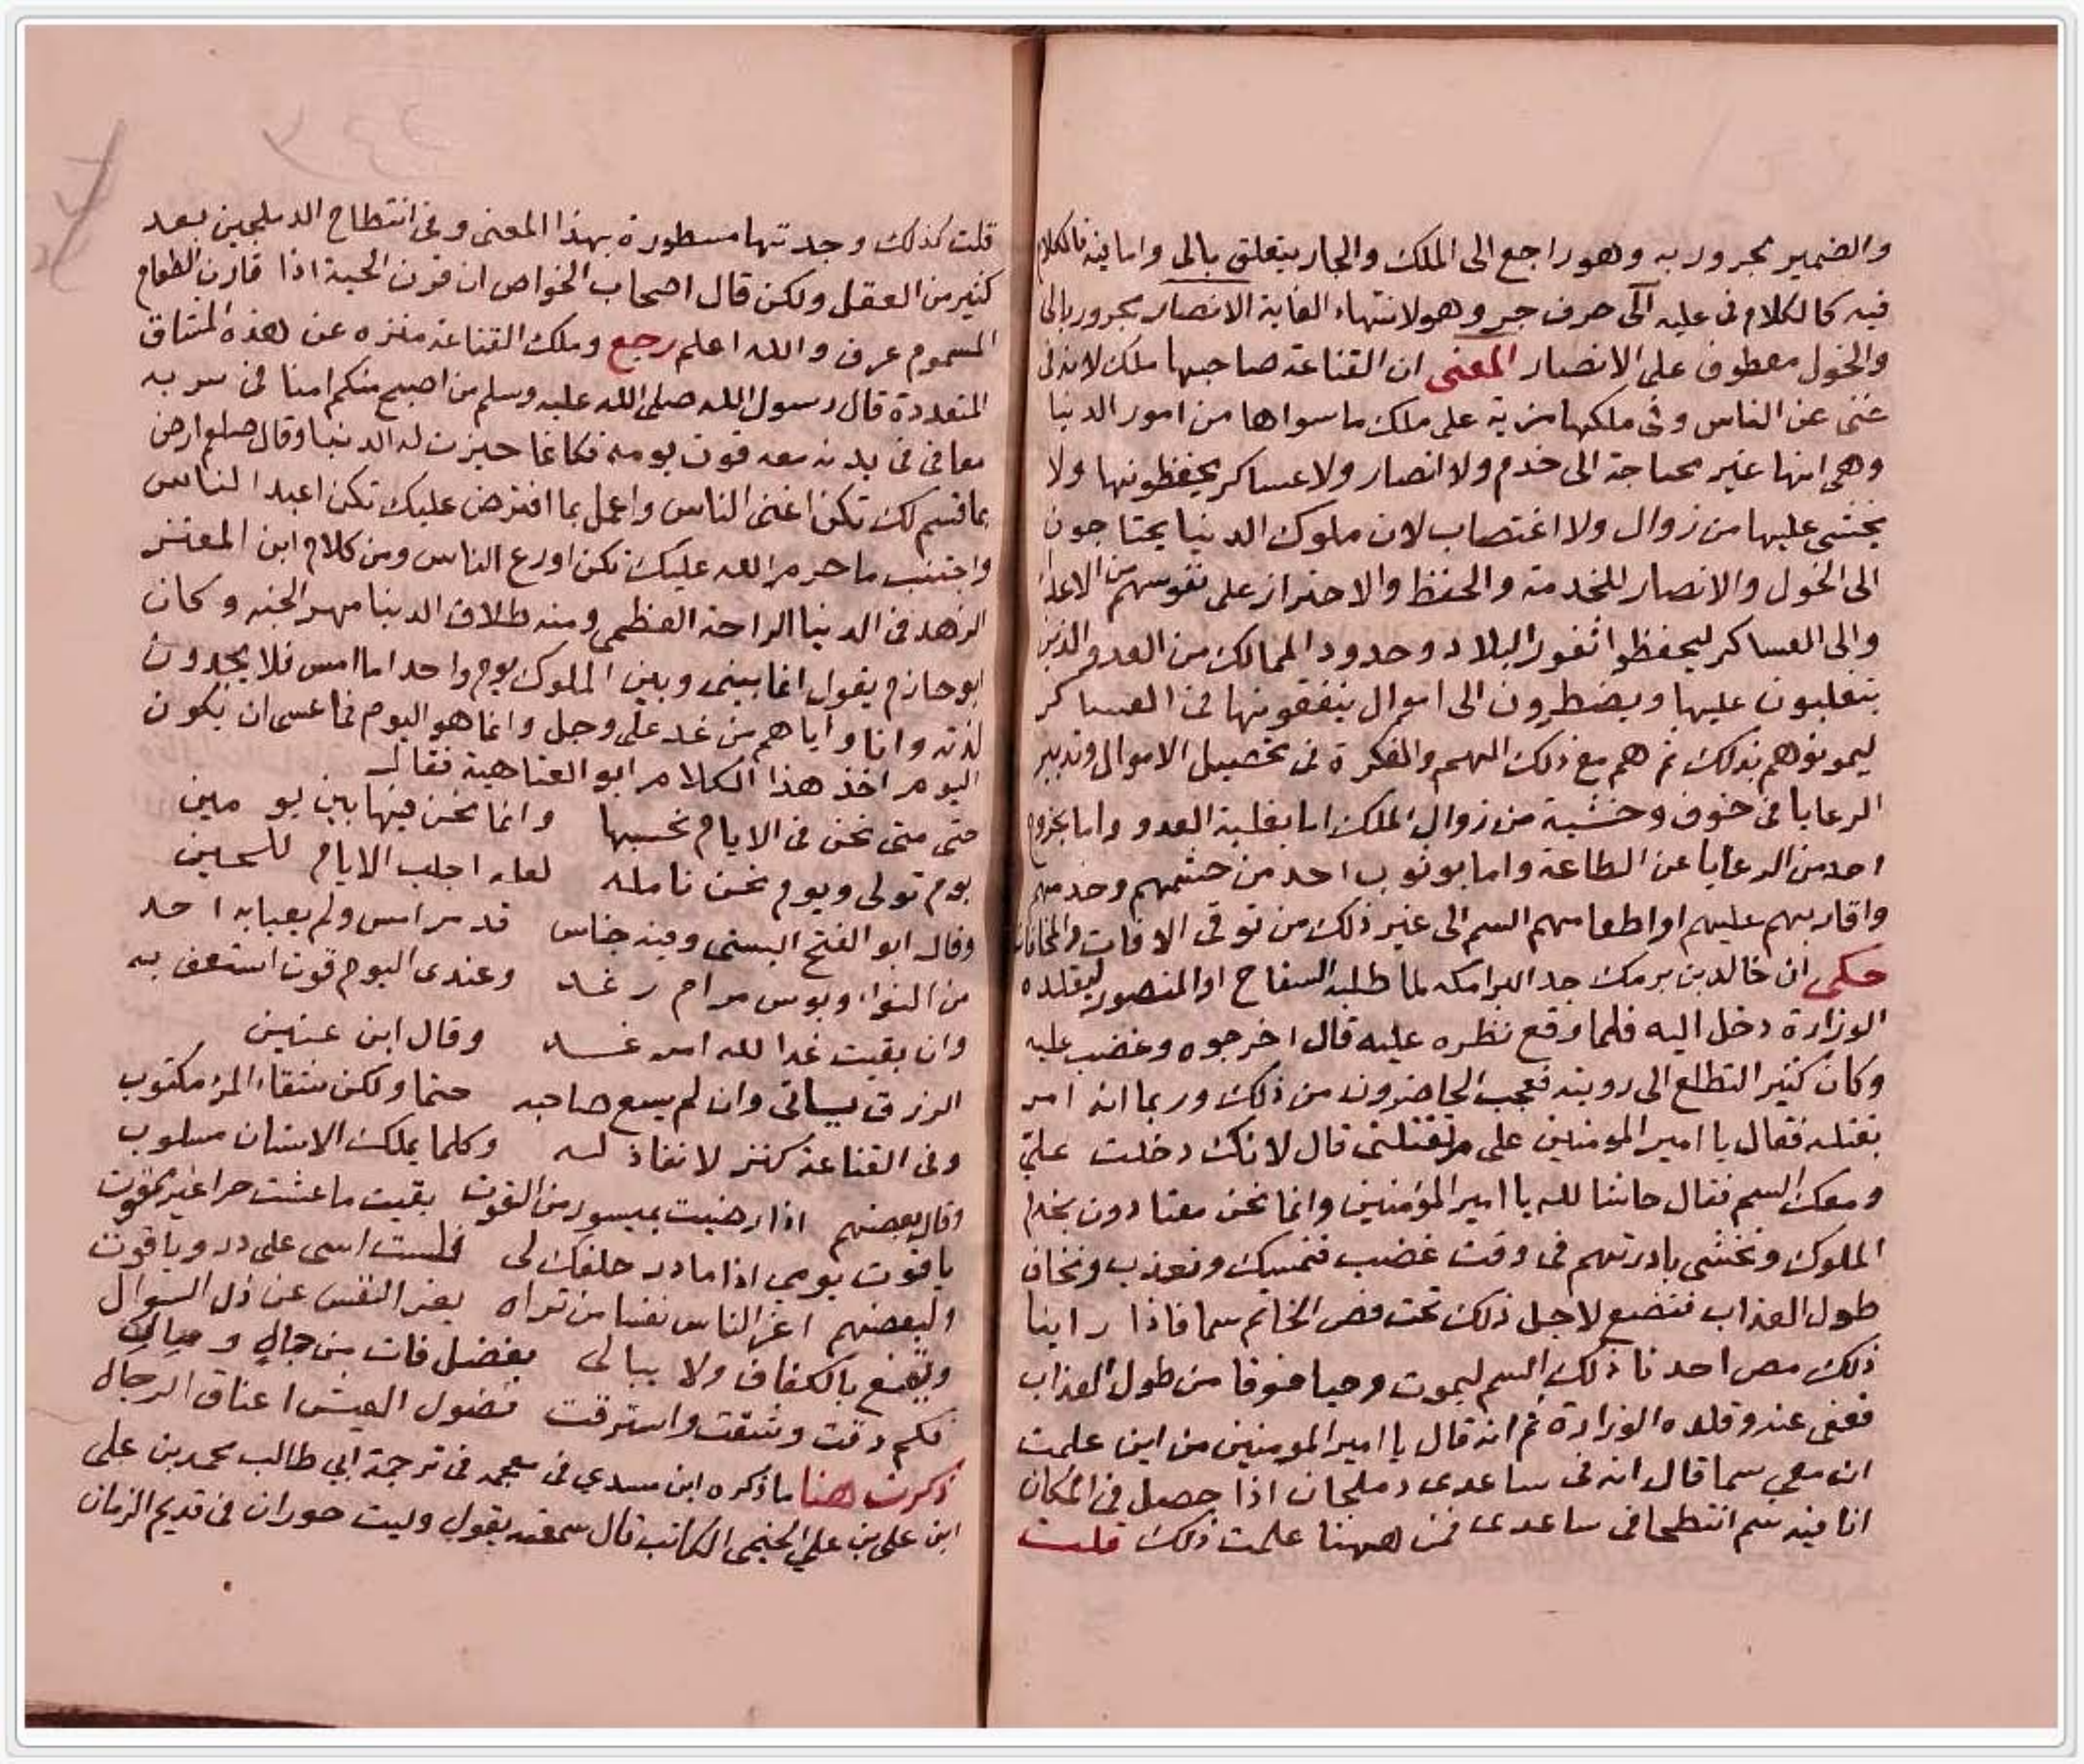 والضمير مجرور به وهو راجع الى الملك والجار يتعلق بالى واما فيه فالكلام
فيه كالكلام فى عليه الى حرف جر وهو لانتهاء الغاية الانصار مجرور بالى
والخول معطوف على الانصار المعنى ان القناعة صاحبها ملك لانه فى
غنى عن الناس وفى ملكها مزية على ملك ما سواها من امور الدنيا
وهى انها غير محتاجة الى خدم ولا انصار ولا عساكر يحفظونها ولا
يخشى عليها من زوال ولا اغتصاب لان ملوك الدنيا يحتاجون
الى الخول والانصار للخدمة والحفظ والاحتراز على نفوسهم من الاعداء
والى العساكر ليحفظوا ثغور البلاد وحدود الممالك من العدو والذين
يتغلبون عليها ويضطرون الى اموال ينفقونها فى العساكر
ليمونوهم بذلك ثم هم مع ذلك الهم والفكرة فى تحصيل الاموال وتدبير
الرعايا فى خوف وخشية من زوال الملك اما بغلبة العدو واما بخروج
احد من الرعايا عن الطاعة واما بوثوب احد من حشمهم وخدمهم
واقاربهم عليهم او اطعامهم السم الى غير ذلك من توقى الافات والمخافات
حكى ان خالد بن برمك جد البرامكه لما طلبه السفاح او المنصور ليقلده
الوزارة دخل اليه فلما وقع نظره عليه قال اخرجوه وغضب عليه
وكان كثير التطلع الى رويته فعجب الحاضرون من ذلك وربما انه امر
بقتله فقال يا امير المومنين على م تقتلنى قال لانك دخلت على
ومعك السم فقال حاشا لله يا امير المؤمنين وانما نحن معتادون بخدم
الملوك ونخشى بادرتهم فى وقت غضب فنمسك ونعذب ونخاف
طول العذاب فنضع لاجل ذلك تحت فص الخاتم سما فاذا راينا
ذلك مص احدنا ذلك السم ليموت وحيا خوفا من طول العذاب
فعفى عنه وقلده الوزارة ثم انه قال يا امير المومنين من اين علمت
ان معى سما قال انه فى ساعدى دملجان اذا حصل فى المكان
انا فيه سم انتطحا فى ساعدى فمن ههنا علمت ذلك قلت
قلت كذلك وجدتها مسطورة بهذا المعنى وفى انتطاح الدملجين بعد
كثير من العقل ولكن قال اصحاب الخواص ان قرن الحية اذا قارن الطعام
المسموم عرق والله اعلم رجع وملك القناعة منزه عن هذه المشاق
المتعددة قال رسول الله صلى الله عليه وسلم من اصبح منكم امنا فى سربه
معافى فى بدنه معه قوت يومه فكانما حيزت له الدنيا وقال صلعم ارض
بما قسم لك تكن اغنى الناس واعمل بما افترض عليك تكن اعبد الناس
واجتنب ما حرم الله عليك تكن اورع الناس ومن كلام ابن المعتز
الزهد فى الدنيا الراحة العظمى ومنه طلاق الدنيا مهر الجنه وكان
ابو حازم يقول انما بينى وبين الملوك يوم واحد اما امس فلا يجدون
لذته وانا واياهم من غد على وجل وانما هو اليوم فما عسى ان يكون
اليوم اخذ هذا الكلام ابو العتاهية فقال
حتى متى نحن فى الايام نحسبها وانما نحن فيها بين يومين
يوم تولى ويوم نحن نامله لعله اجلب الايام للحين
وقال ابو الفتح البستى وفيه جناس قد مر امس ولم يعبا به احد
من النواء وبوس مر ام رغد وعندى اليوم قوت استعف به
وان بقيت غدا لله امر غد وقال ابن عنين
الرزق يساتى وان لم يسع صاحبه حتما ولكن شقاء المرء مكتوب
وفى القناعة كنز لا نفاذ له وكلما يملك الانسان مسلوب
وقال بعضهم اذا رضيت بميسور من القوت بقيت ما عشت حرا غير ممقوت
يا قوت يومى اذا ما در حلفك لى فلست اسى على در وياقوت
ولبعضهم اعز الناس نفسا من تراه يعز النفس عن ذل السوال
ويقنع بالكفاف ولا يبالى بفضل فات من جاه ومال
فكم دقت وشقت واسترقت فضول العيش اعناق الرجال
ذكرت هنا ما ذكره ابن مسدي فى معجمه فى ترجمة ابي طالب محمد بن على
ابن على بن علي الخيمى الكاتب قال سمعته يقول وليت حوران فى قديم الزمان